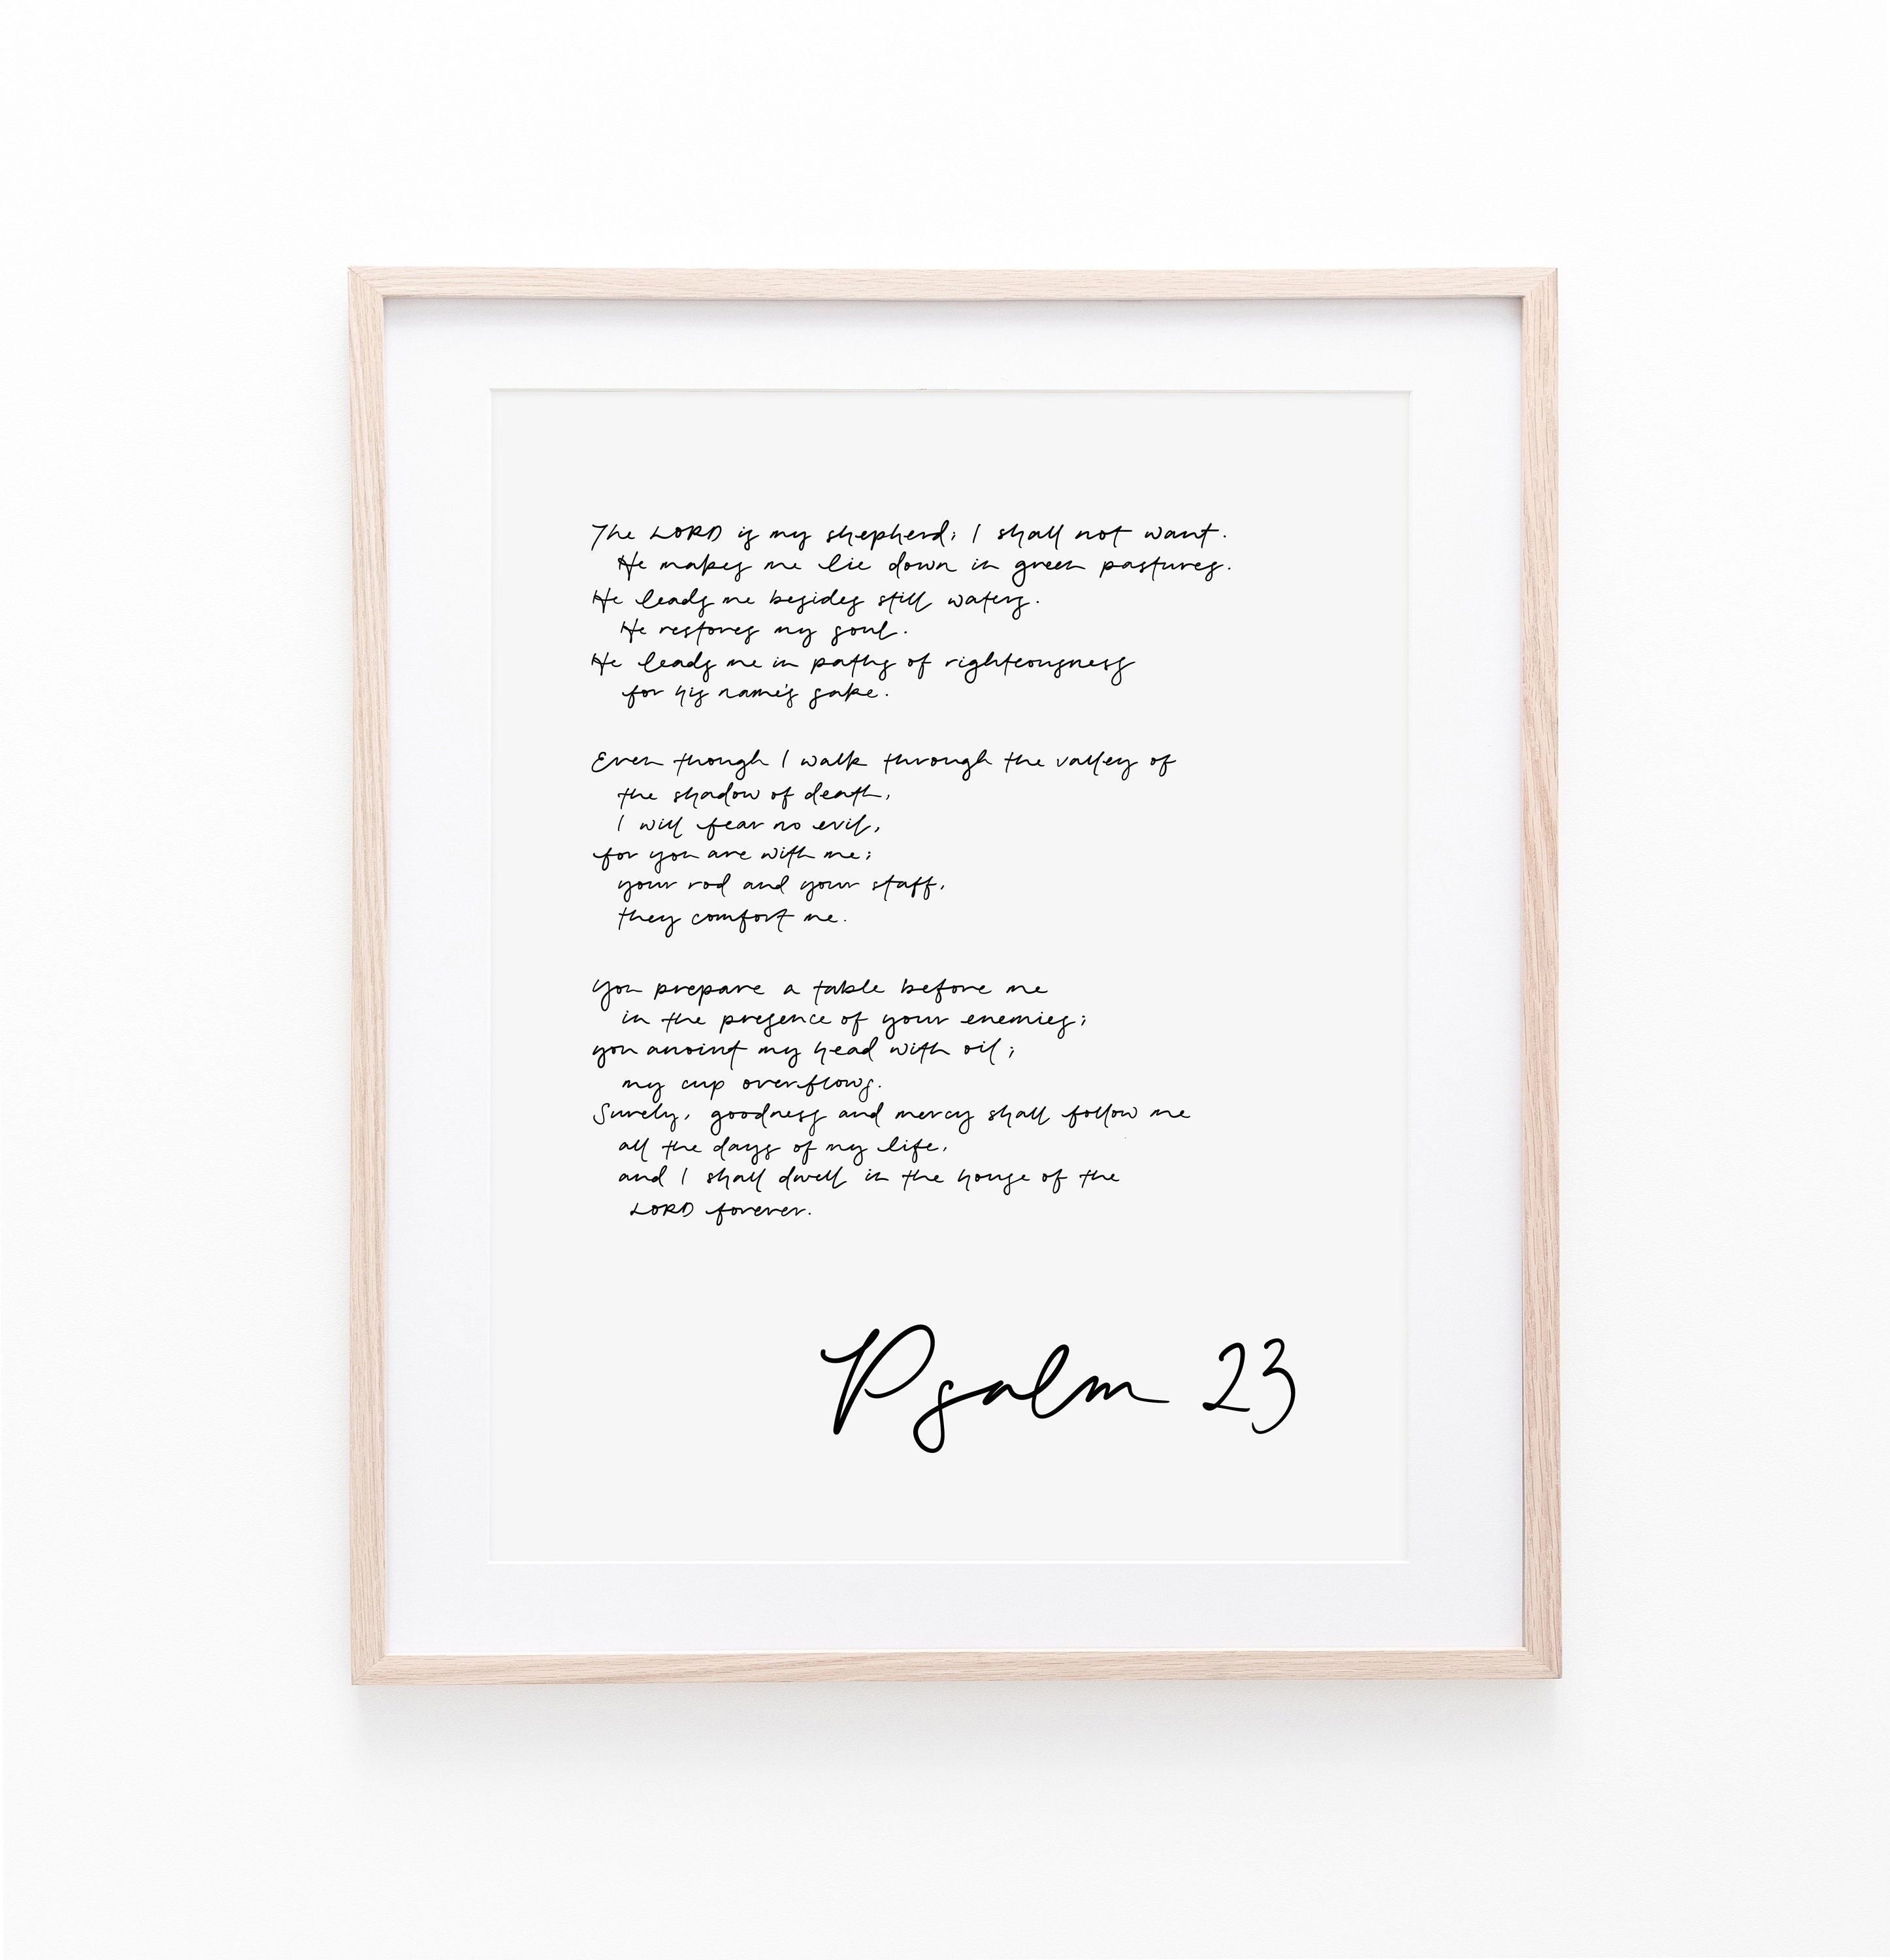 The LORD is my shepherd; I shall not want.
He makes me lie down in green pastures.
He leads me besides still waters.
He restores my soul.
He leads me in paths of righteousness
for his name's sake.
Even though I walk through the valley of
the shadow of death,
I will fear no evil,
for you are with me;
your rod and your staff,
they comfort me.
You prepare a table before me
in the presence of your enemies;
you anoint my head with oil;
my cup overflows.
Surely, goodness and mercy shall follow me
all the days of my life,
and I shall dwell in the house of the
LORD forever.
Psalm 23